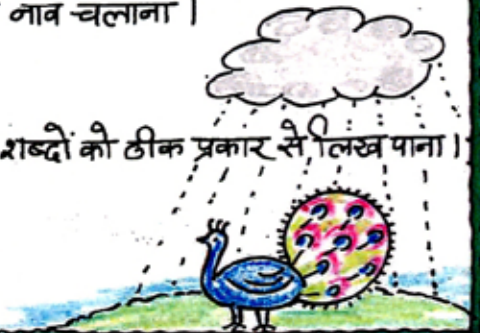 नाव चलाना ।
शब्दों को ठीक प्रकार से लिख पाना ।